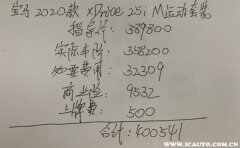 宝马2020款 xDrive 25i M运动套装
指导价: 389800
实际车价: 358200
必要费用: 32309
商业险: 9532
上牌费: 500
合计: 400541
WWW.XCAUTO.COM.CN